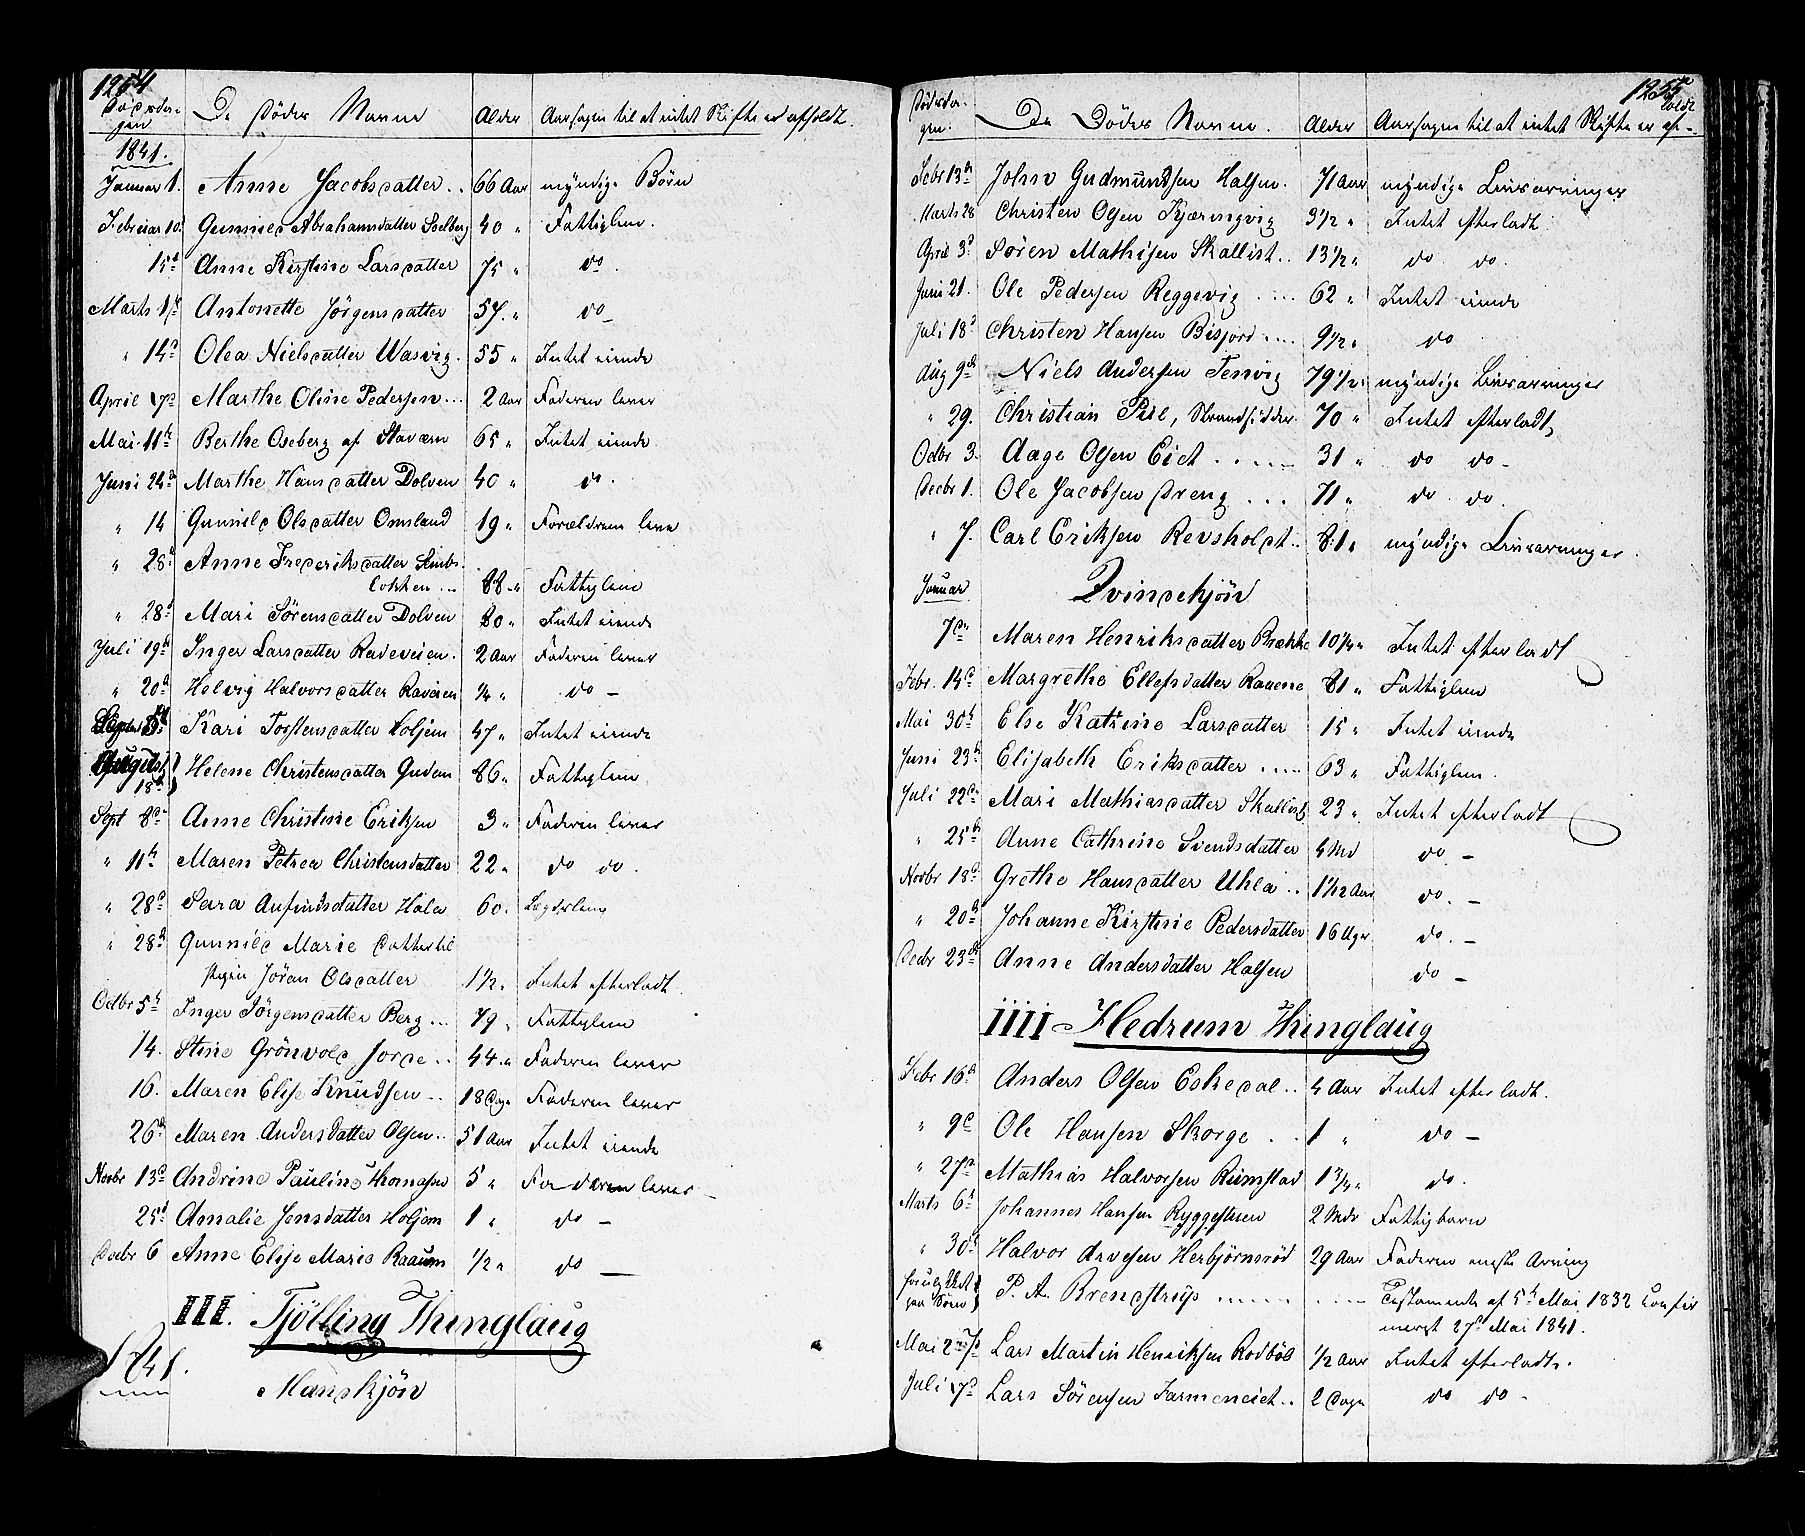 1254
Dødsda-
gen De Dødes Navne Alder Aarsagen til at intet Skifte er afholdt.
1841.
Januar 1. Anne Jacobsdatter .. 66 Aar myndige Børn
Februar 10. Gunnild Abrahamsdatter Soelberg 40 " Fattiglem.
15d Anne Kirstine Larsdatter 75 " do.
Marts 1st Antonette Jørgensdatter 57. " do -
" 14d Olea Nielsdatter Wasvig. 55 " Intet eiende
April 17d Marthe Oline Pedersen... 2 Aar Faderen lever
Mai 11te Berthe Oseberg af Staværn 65 " Intet eiende
Juni 24d Marthe Hansdatter Dolven 40 " do.
" 14 Gunnild Olsdatter Omsland 19 " Forældrene leve
" 28d Anne Frederiksdatter
lokken ... 88 " Fattiglem
" 28d Mari Sørensdatter Dolven 80 " Intet eiende
Juli 19d Inger Larsdatter Radeveien. 2 Aar Faderen lever
" 20d Helvig Halvorsdatter Raveien 1/4 " do -
Kari Torstensdatter Holjem 47 " Intet eiende
August
18d Helene Christensdatter Guden 86 " Fattiglem
Sept 8de Anne Christine Eriksen 3 " Faderen lever
" 11te Maren Petrea Christensdatter 22 " do do.
" 28d Sara Anfindsdatter Holen 60. Lægdslem
" 28d Gunnild Marie Datter til
Pigen Jøran Olsdatter 1 1/2 " Intet efterladt.
Octbr 5te Inger Jørgensdatter Berg ... 79 " Fattiglem
14. Stine Grönvold Jorde .. 44 " Faderen lever
16. Maren Elise Knudsen .. 18 Dage Faderen lever
26d Maren Andersdatter Olsen .. 51 Aar Intet eiende
Novbr 13d Andrine Pauline Thomasen 5 " Faderen lever -
25d Amalie Jensdatter Holjem 1 " do -
Decbr 6 Anne Elise Marie Raaum 1/2 " do -
III. Tjölling Thinglaug
1841.
Mandkjön
1255
Dødsda-
gen. De Dødes Navne. Alder Aarsagen til at intet Skifte er af-
holdt
Febr 13de John Gudmundsen Halsen. 71 Aar myndige Livsarvinger
Marts 28 Christen Olsen Kjæringvig 3 1/2 " Intet efterladt
April 3d Søren Mathisen Skallist. 13 1/2 " do do.
Juni 21. Ole Pedersen Reggevig .... 62 " Intet eiende
Juli 18d Christen Hansen Bisjord .... 9 1/2 " do
Aug 9de Niels Andersen Tenvig 79 1/2 " myndige Livsarvinger
" 29. Christian Piil, Strandsidder. 70 " Intet efterladt,
Octbr 3. Aage Olsen Eid ..... 31 " do do -
Decbr 1. Ole Jacobsen Dreng ... 71 " do do.
" 7. Carl Eriksen Revsholdt.. 81 " myndige Livsarvinger.
Januar Qvindekjön
7de Maren Henriksdatter Brække 10 1/4 " Intet efterladt
Febr. 14d Margrethe Ellefsdatter Rauene 81 " Fattiglem
Mai 30te Else Katrine Larsdatter 15 " Intet eiende
Juni 23d Elisabeth Eriksdatter ..... 63 " Fattiglem.
Juli 22de Mari Mathiasdatter Skallist 23 " Intet efterladt
" 25d Anne Cathrine Svendsdatter 4 Md do. -
Novbr 18d Grethe Hansdatter Uhla .. 1 1/12 Aar do. -
" 20d Johanne Kirstine Pedersdatter 16 Uger do. -
Decbr 23de Anne Andersdatter Halsen do -
IIII - Hedrum Thinglaug
Febr 16d Anders Olsen Eskedal .. 4 Aar Intet efterladt.
" 9d Ole Hansen Skorge .. 1 " do -
" 27d Mathias Halvorsen Rimstad 1 3/4 " do.
Marts 6d Johannes Hansen Ryggesteen 2 Mdr Fattigbarn
" 30d Halvor Arvesen Herbjörnsröd 29 Aar Faderen eneste Arving
paa Søen P. A. Brendstrup ....... .... Testamente af 5te Mai 1832 confir
meret 27d Mai 1841.
Mai Lars Martin Henriksen Rodböl 1/2 Aar Intet efterladt.
Juli 17d Lars Sörensen Farmeneiet .. 2 Dage do do -